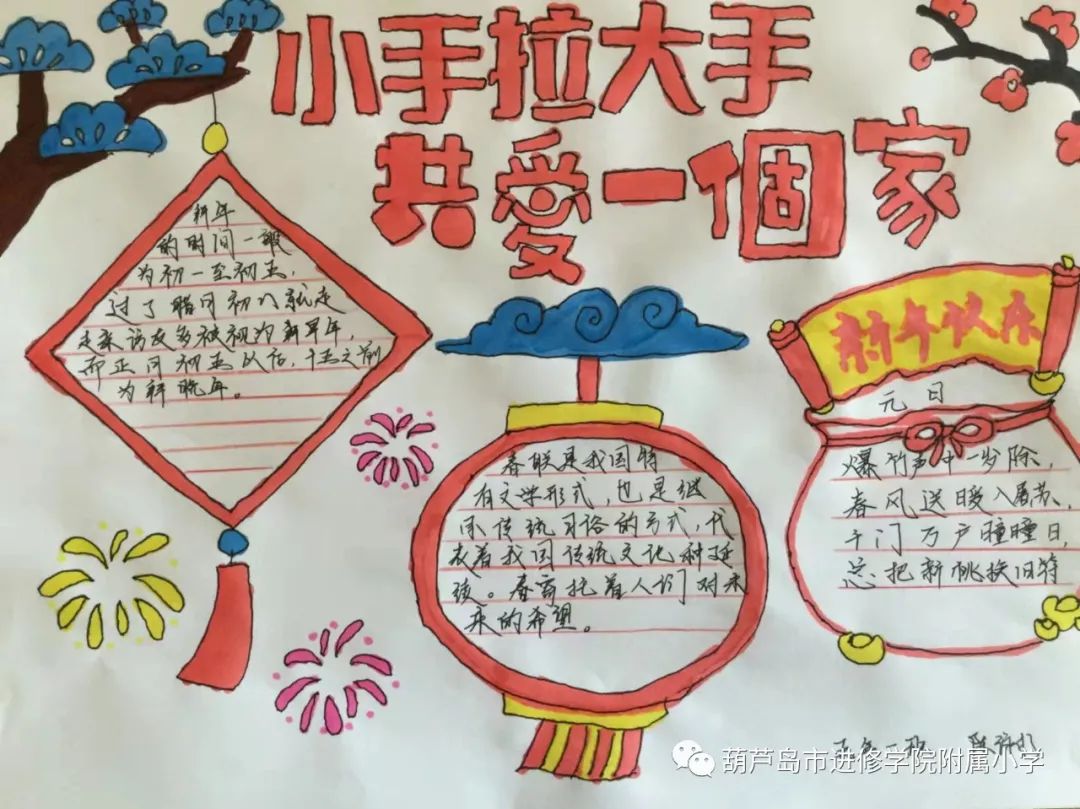 小手拉大手
共愛一個家
新年
的时间一般
为初一至初五,
过了腊月初八就走
走亲访友多被视为拜早年,
而正月初五以后,十五之前
为拜晚年。
春联是我国特
有文学形式,也是继
传统习俗的方式,代
表着我国传统文化和延
续。春寄托着人们对未
来的希望。
新年快乐
元日
爆竹声中一岁除,
春风送暖入屠苏,
千门万户曈曈日,
总把新桃换旧符
葫芦岛市进修学院附属小学